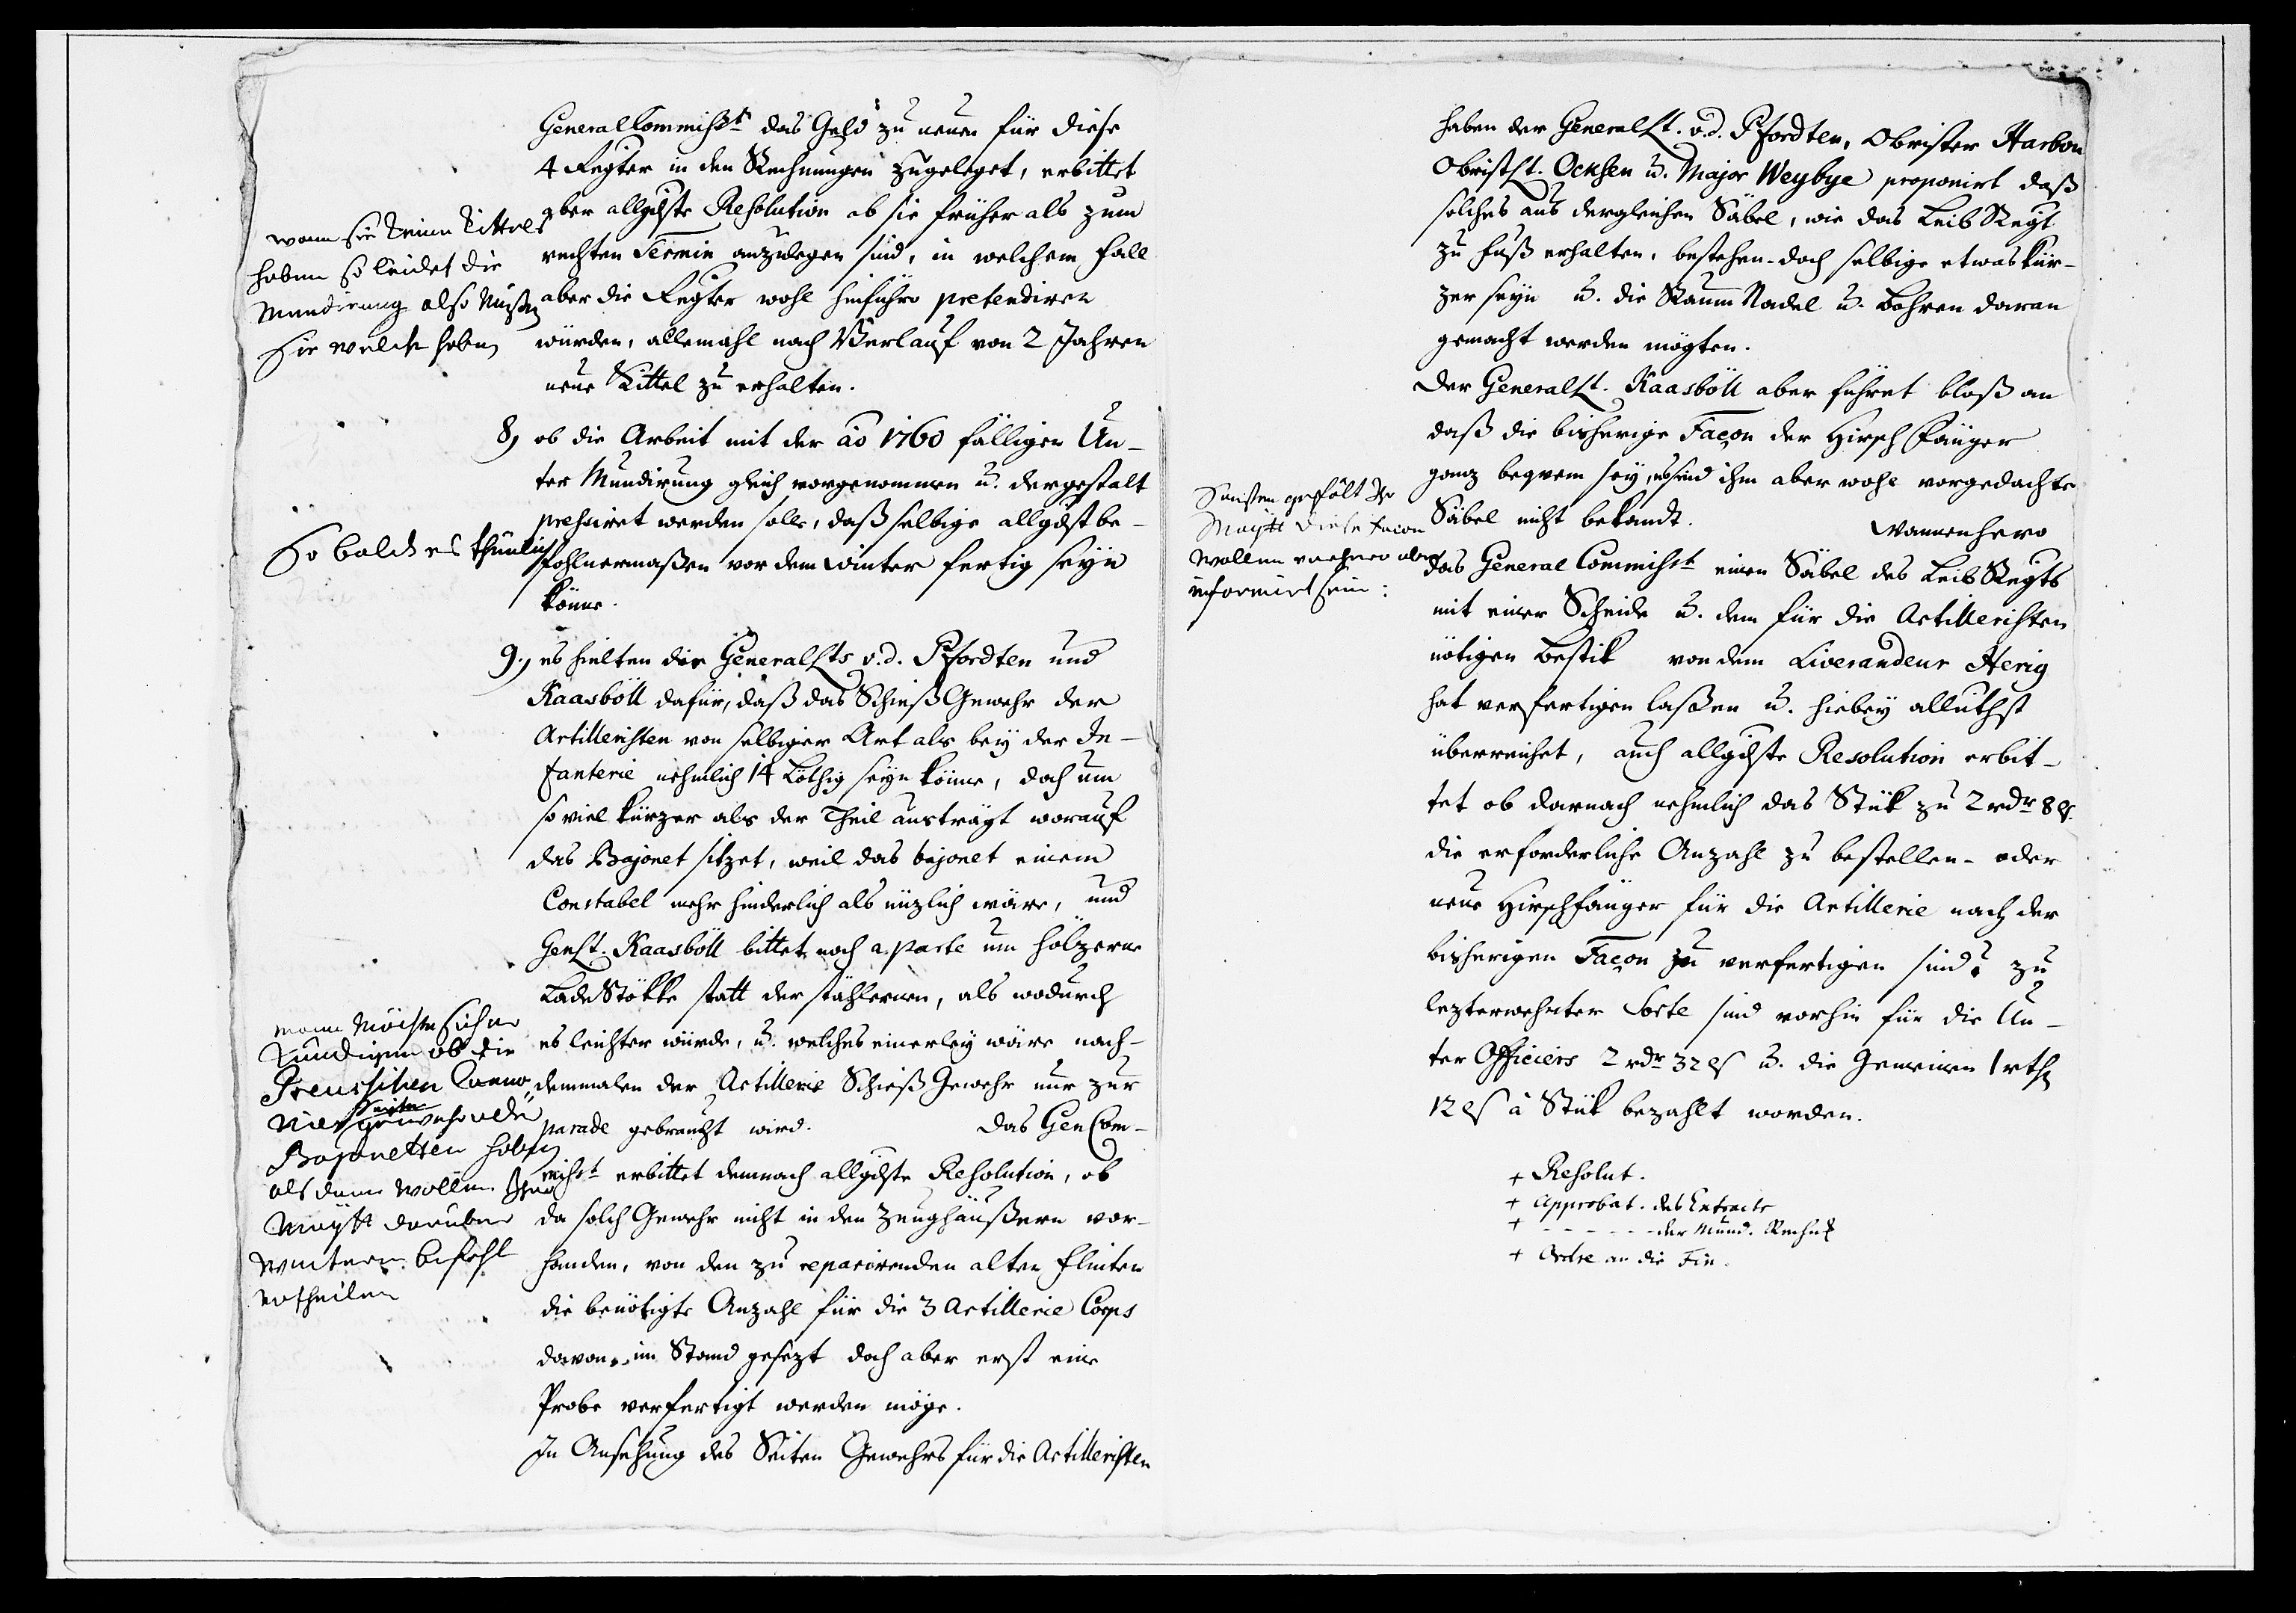 GeneralCommisst das Geld zu neuen für diese
4 Regter in den Rechnungen zugeleget, erbittet
aber allgdste Resolution ob sie früher als zum
rechten Termin anzulegen sind, in welchem fall
aber die Regter wohl hinführo pretendiren
würden, allemahl nach Verlauf von 2 Jahren
neue Kittel zu erhalten.
wann sie keine Kittels
haben so leidet die
Mundirung also Müßen
sie welche haben
8, ob die Arbeit mit der ao 1760 fälligen Un-
ter Mundirung gleich vorgenommen u. dergestalt
pressiret werden solle, daß selbige allgdst be-
fohlnermaßen vor dem Winter fertig seyn
könne.
So bald es thunlich
9., es hielten die GeneralLts v. d. Pfordten und
Kaasböll dafür, daß das Schieß Gewehr der
Artilleristen von selbiger Art als bey der In-
fanterie nehmlich 14 Löthig seyn könne, doch um
so viel kürzer als der Theil austrägt worauf
das Bajonet sitzet, weil das bajonet einem
Constabel mehr hinderlich als nüzlich wäre, und
GenLt. Kaasböll bittet noch a parte um hölzerne
LadeStökke statt der stählernen, als wodurch
es leichter würde, u. welches einerley wäre nach-
demmalen der Artillerie Schieß Gewehr nur zur
parade gebraucht wird. Das GenCom-
misst erbittet demnach allgdste Resolution, ob
da solch Gewehr nicht in den Zeughäußern vor-
handen, von den zu reparirenden alten flinten
die benötigte Anzahl für die 3 Artillerie Corps
davon im Stand gesezt doch aber erst eine
Probe verfertigt werden möge.
In Ansehung des Seiten Gewehrs für die Artilleristen
mann Möchte sich er
kundigen ob die
Preussischen Canno
nier gewehr und
Bajonetten haben
als dann wollen Ihro
Mayst daruber
weitern befehl
ertheilen
haben der GeneralLt. v. d. Pfordten, Obrister Harbou
ObristLt. Ocksen u. Major Weybye proponirt daß
solches aus dergleichen Säbel, wie das Leib Regt
zu fuß erhalten, bestehen doch selbige etwas kür-
zer seyn u. die Raum Nadel u. Bohren daran
gemacht werden mögten.
Der GeneralLt. Kaasböll aber führet bloß an
daß die bisherige Façon der Hirschfänger
ganz beqvem sey, es sind ihm aber wohl vorgedachte
Säbel nicht bekandt. Wannenhero
das General Commisst einen Säbel des Leib Regts
mit einer Scheide u. dem für die Artilleristen
nötigen Bestik von dem Liverandeur Herig
hat verfertigen laßen u. hiebey alluthst
überreichet, auch allgdste Resolution erbit-
tet ob darnach nehmlich das Stük zu 2 rdr 8 ß.
die erforderliche Anzahl zu bestellen oder
neue Hirschfänger für die Artillerie nach der
bisherigen Façon zu verfertigen sind? zu
lezterwehnter Sorte sind vorhin für die Un-
ter Officiers 2 rdr 32 ß u. die Gemeinen 1 rthl
12 ß à Stük bezahlt worden.
Sonsten gefält Ihr
Maystt diese facon
wollen vorhero aber
informirt sein:
+ Resolut.
+ Approbat. des Extracts
+ - - - - - - der Mund. Rechn.
+ Ordre an die Fin.